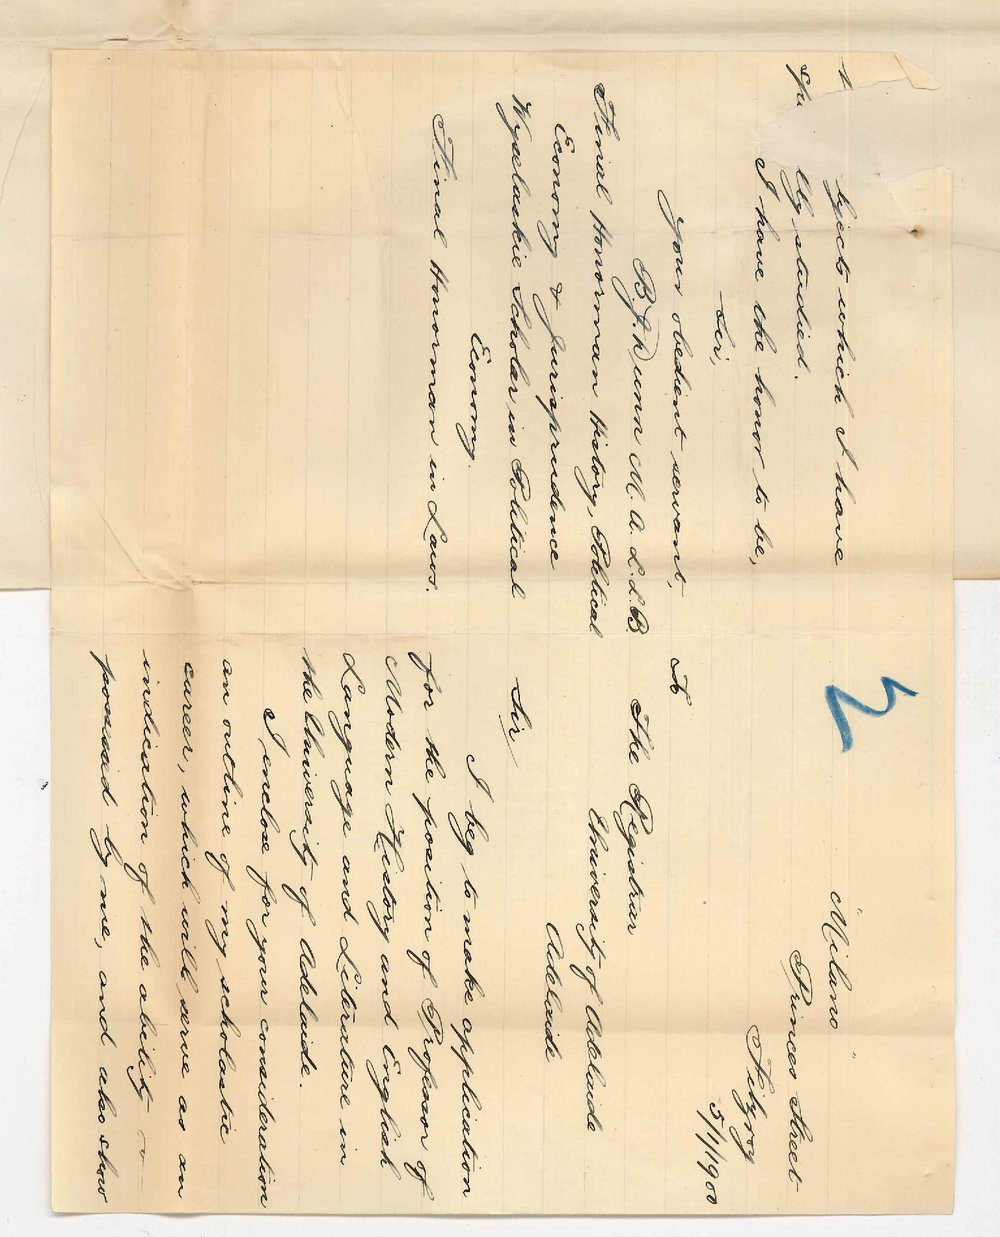 "Milano"
Princes Street
Fitzroy
5/1/1900
To
The Registrar
University of Adelaide
Adelaide
Sir
I beg to make application
for the position of Professor of
Modern History and English
Language and Literature in
the University of Adelaide.
I enclose for your consideration
an outline of my scholastic
career, which will serve as an
indication of the ability
possessed by me, and also show
bjects which I have
lly studied.
I have the honor to be,
Sir,
Your obedient servant,
B.J. Dunn M.A. L.L.B.
Final Honorman History, Political
Economy & Jurisprudence
Wyselaskie Scholar in Political
Economy.
Final Honorman in Laws.